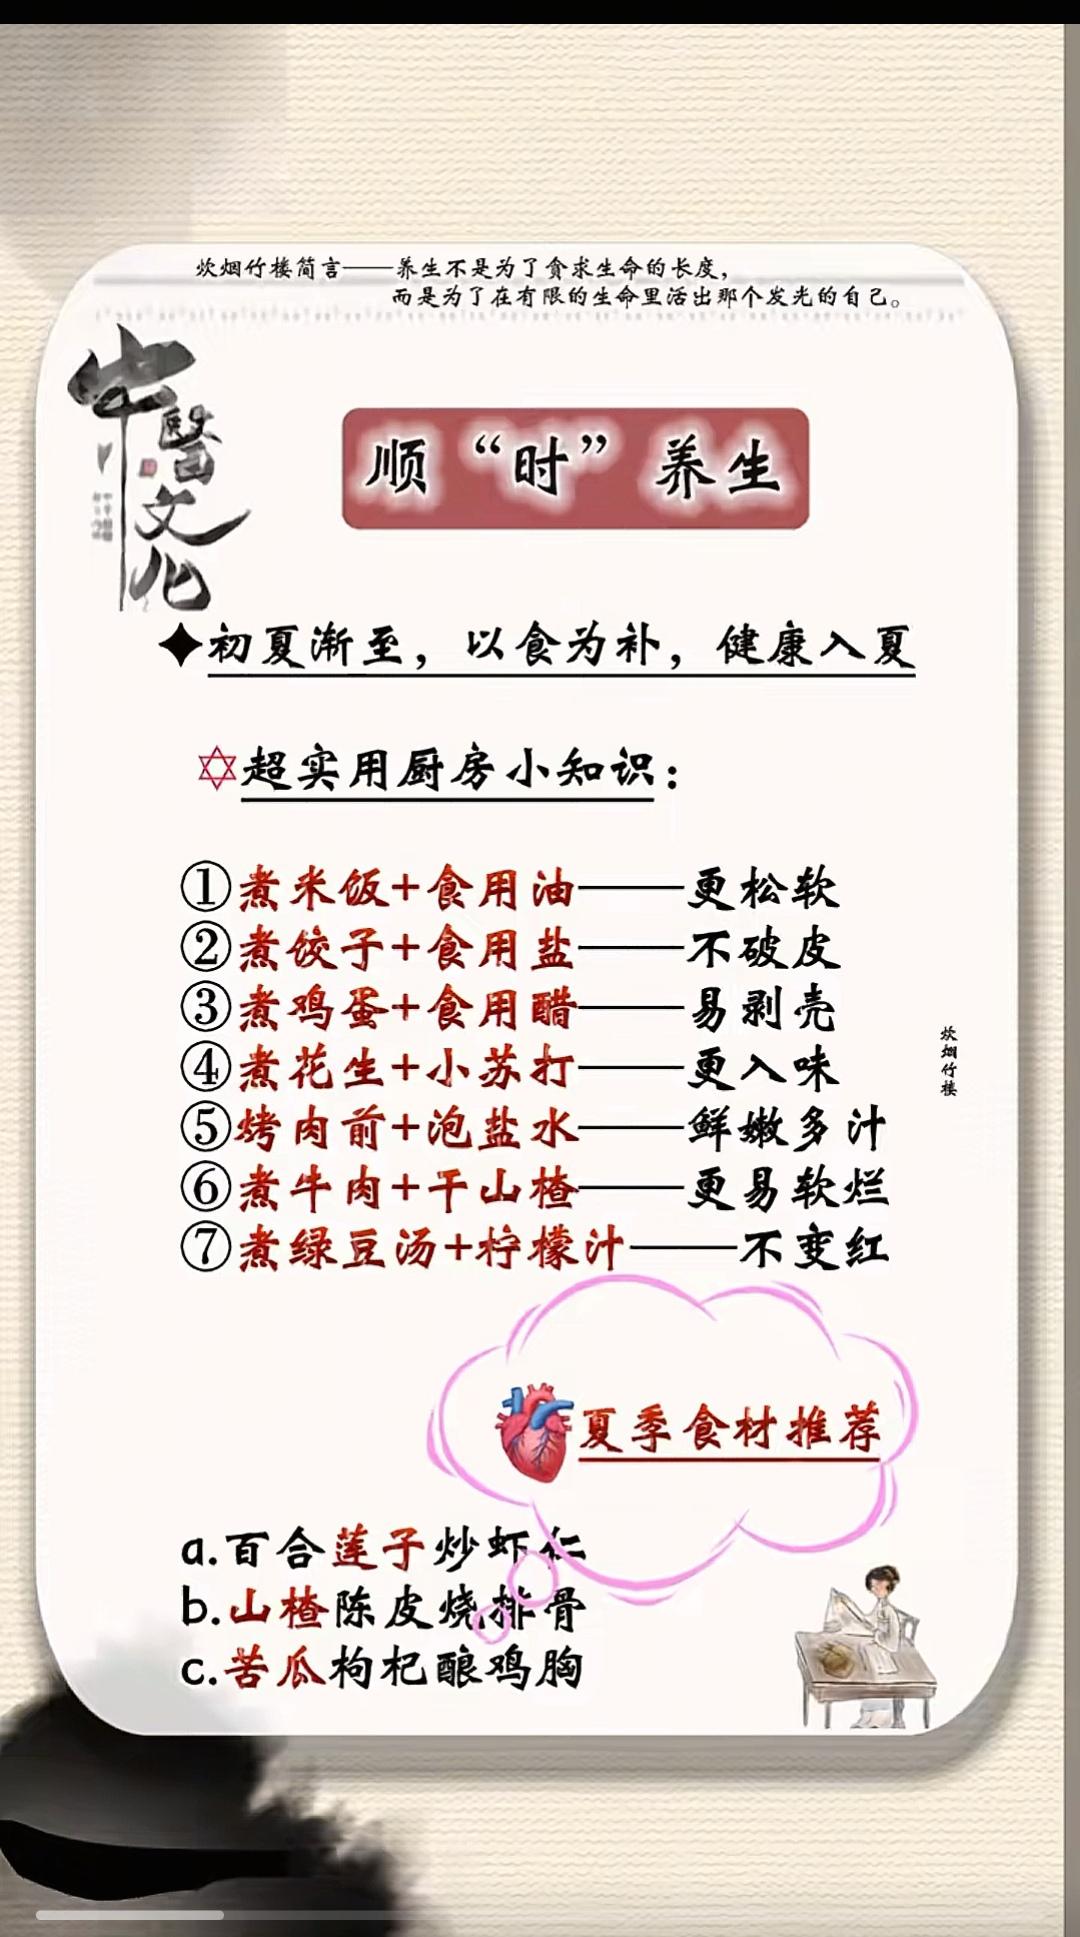 炊烟竹楼简言——养生不是为了贪求生命的长度，
而是为了在有限的生命里活出那个发光的自己。
中醫文化
顺“时”养生
✦初夏渐至，以食为补，健康入夏
✡超实用厨房小知识：
①煮米饭+食用油——更松软
②煮饺子+食用盐——不破皮
③煮鸡蛋+食用醋——易剥壳
④煮花生+小苏打——更入味
⑤烤肉前+泡盐水——鲜嫩多汁
⑥煮牛肉+干山楂——更易软烂
⑦煮绿豆汤+柠檬汁——不变红
炊烟竹楼
夏季食材推荐
a.百合莲子炒虾仁
b.山楂陈皮烧排骨
c.苦瓜枸杞酿鸡胸